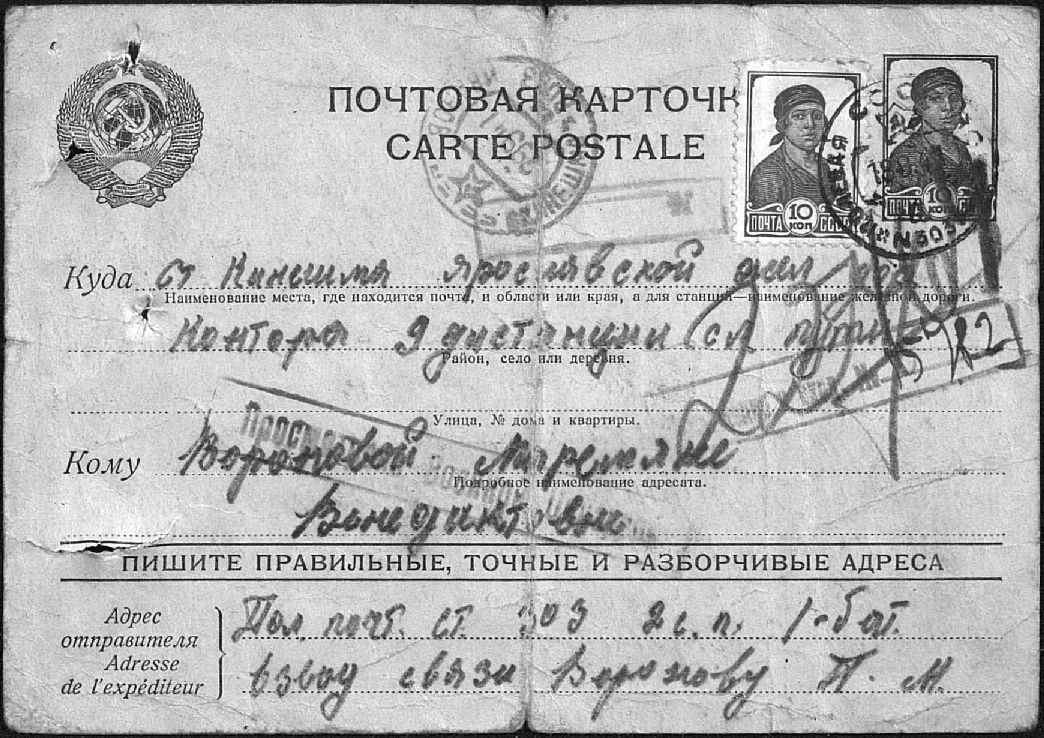 ПОЧТОВАЯ КАРТОЧК
CARTE POSTALE
10 КОП
ПОЧТА СССР
10 КОП
Куда ст Кинешма Ярославской жел дор
Наименование места, где находится почта, и области или края, а для станции—наименование железной дороги.
Контора 9 дистанции сл пути
Район, село или деревня.
Улица, № дома и квартиры.
Просмотрено Военной
Кому Вороновой
Подробное наименование адресата.
ПИШИТЕ ПРАВИЛЬНЫЕ, ТОЧНЫЕ И РАЗБОРЧИВЫЕ АДРЕСА
Адрес отправителя
Adresse de l'expéditeur
Пол. почт. ст. 303 2 с. п. 1-бат.
взвод связи Воронову П. М.